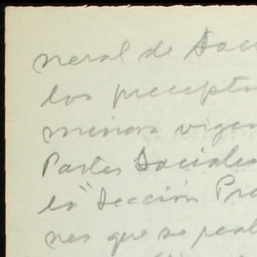 neral de Soci
los precepto
minera vigen
Partes Sociales
la "Sección Pro
nes que se real